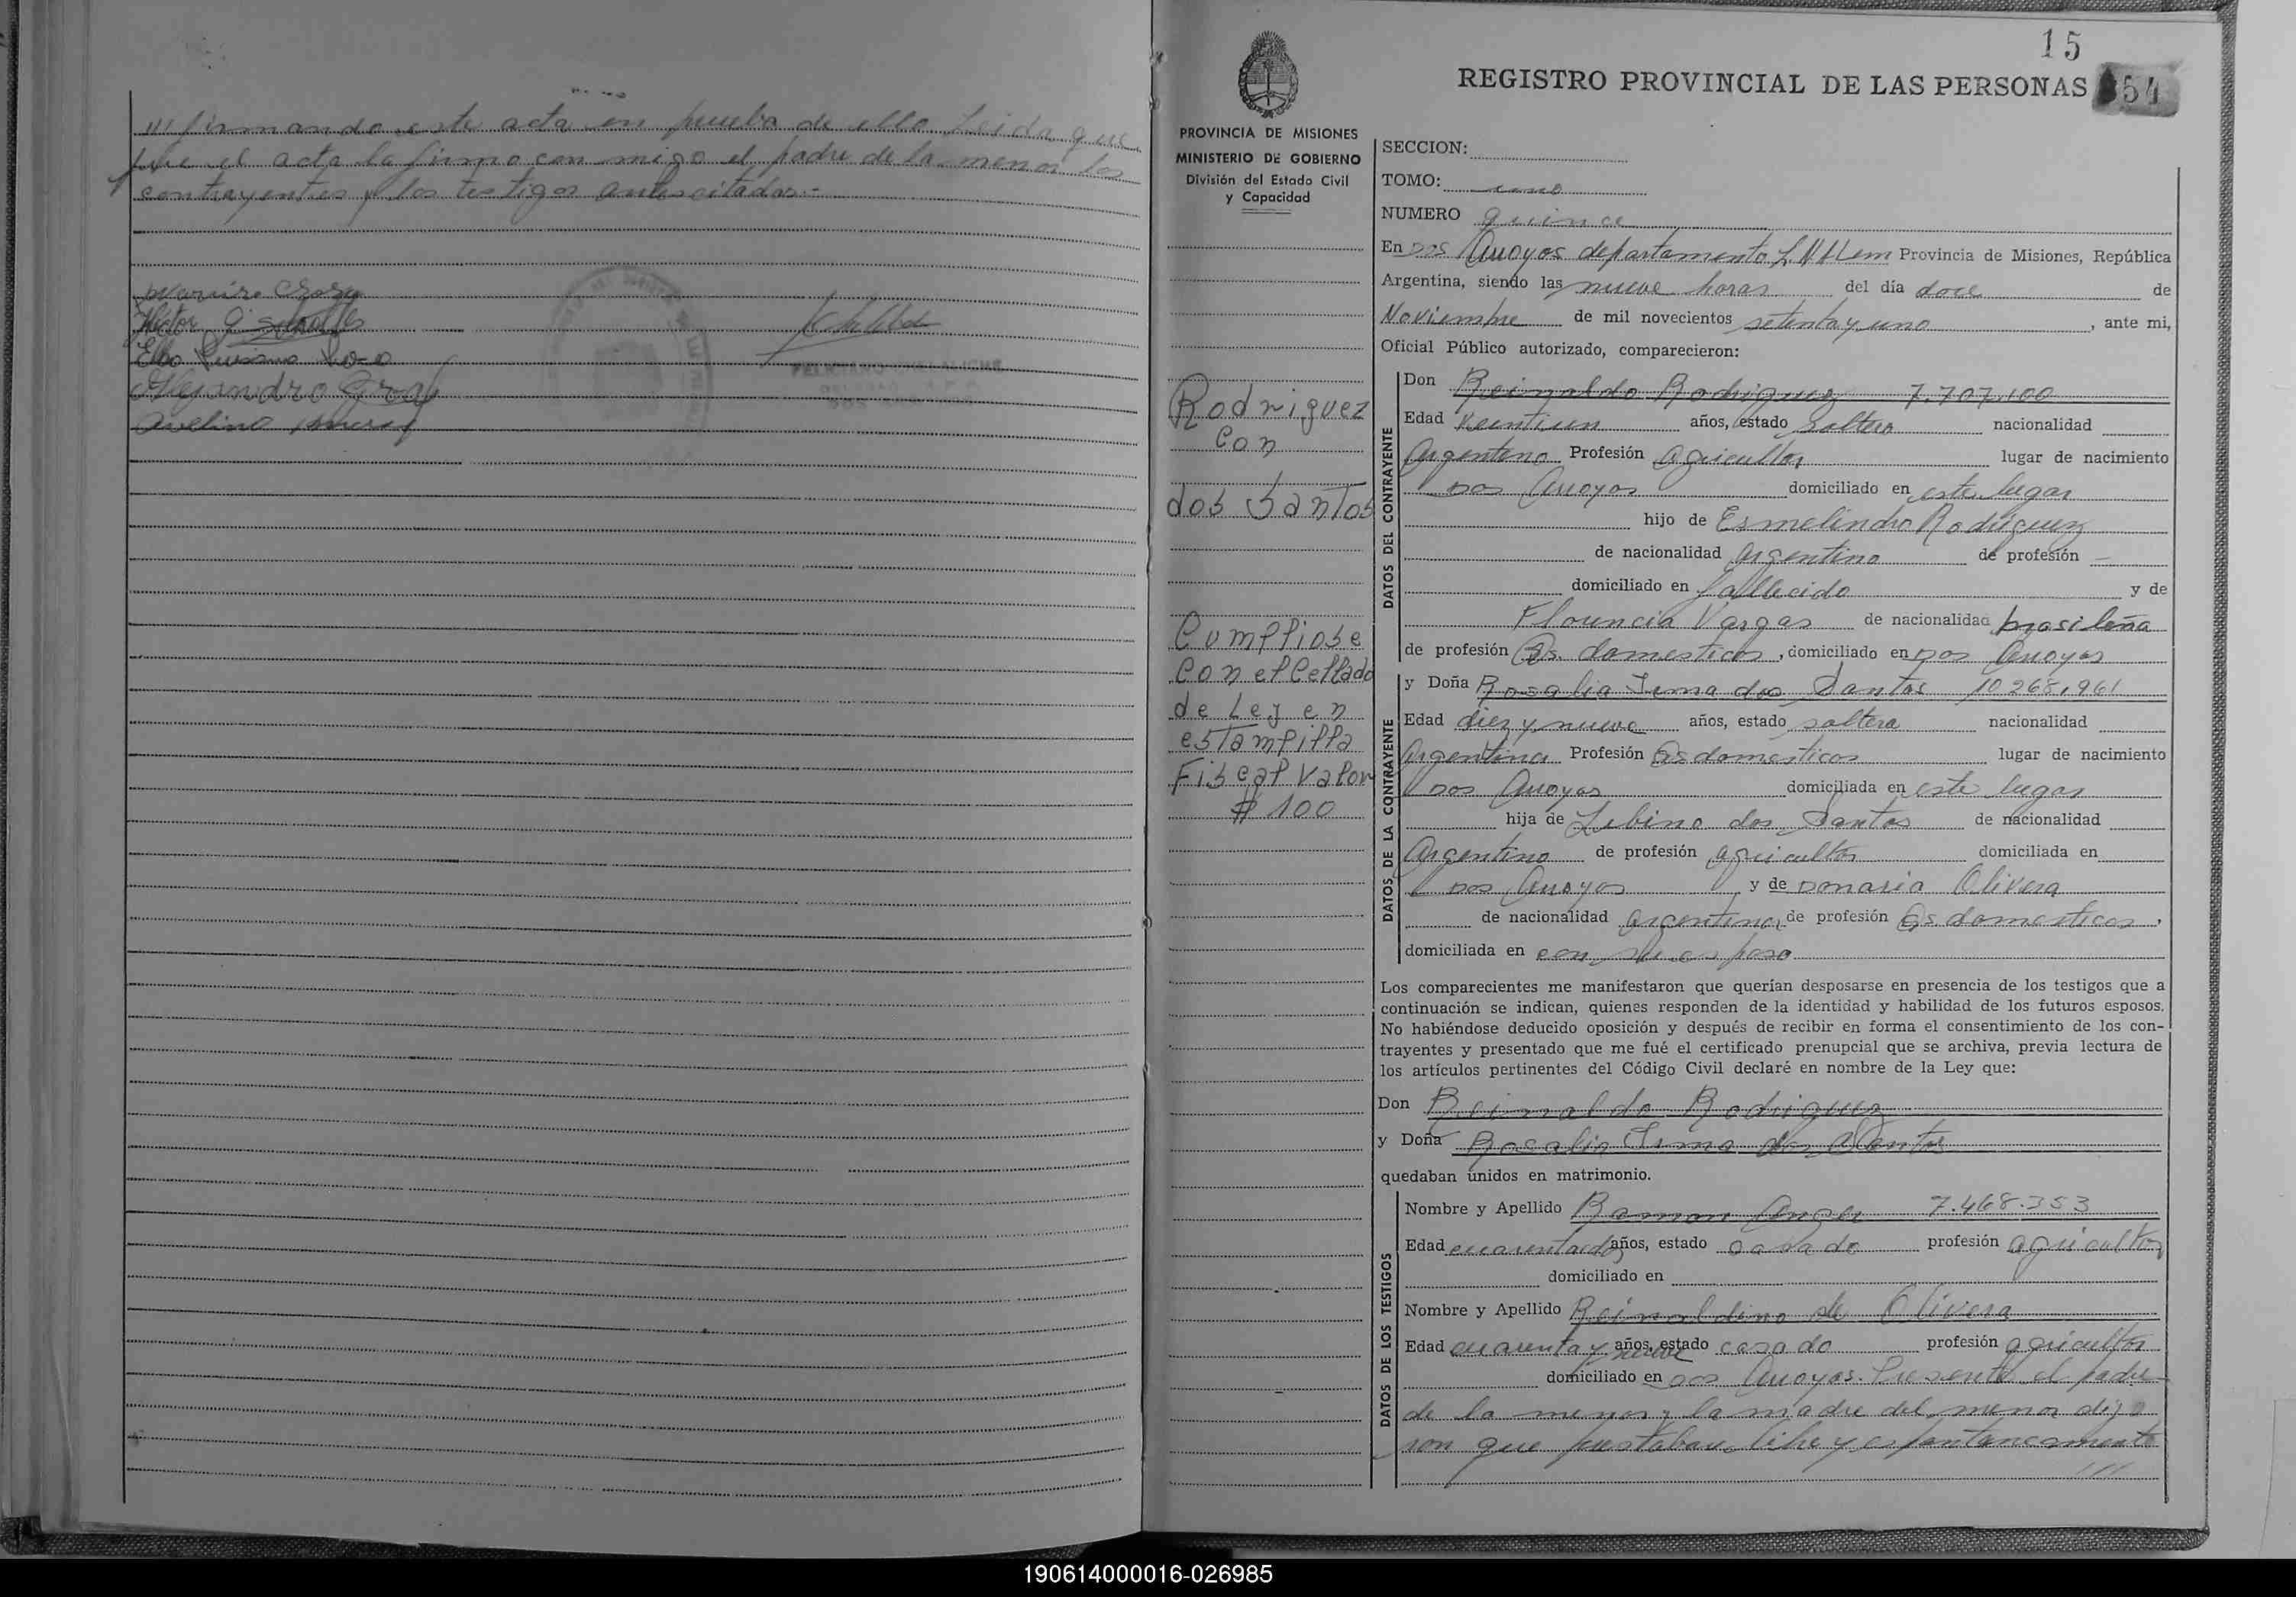 /// firmando este acta en prueba de ello Leida que
fue el acta la firma con migo el padre de la menor los
contrayentes y los testigos antes citados -
Hector
Elba Luisana
Alejandro Graf
Avelino
15
REGISTRO PROVINCIAL DE LAS PERSONAS 54
PROVINCIA DE MISIONES
MINISTERIO DE GOBIERNO
División del Estado Civil
y Capacidad
Rodriguez
Con
dos Santos
Cumpliose
Con el Cellado
de Ley en
estampilla
Fiscal Valor
$ 100
SECCION:
TOMO: uno
NUMERO quince
En Dos Arroyos departamento L N Alem Provincia de Misiones, República
Argentina, siendo las nueve horas del día doce de
Noviembre de mil novecientos setenta y uno, ante mi,
Oficial Público autorizado, comparecieron:
DATOS DEL CONTRAYENTE
Don Reinaldo Rodriguez 7.707.100
Edad veintiun años, estado Soltero nacionalidad
argentino Profesión agricultor lugar de nacimiento
Dos Arroyos domiciliado en este lugar
hijo de Esmelindro Rodriguez
de nacionalidad argentino de profesión —
domiciliado en fallecido y de
Florencia Vargas de nacionalidad brasileña
de profesión Qs. domesticos, domiciliado en Dos Arroyos
DATOS DE LA CONTRAYENTE
y Doña Rosalia Irma dos Santos 10.268.961
Edad diez y nueve años, estado soltera nacionalidad
Argentina Profesión Qs domesticos lugar de nacimiento
Dos Arroyos domiciliada en este lugar
hija de Libino dos Santos de nacionalidad
Argentino de profesión agricultor domiciliada en
Dos Arroyos y de Donaria Olivera
de nacionalidad argentina de profesión Qs domesticos,
domiciliada en con su esposo
Los comparecientes me manifestaron que querían desposarse en presencia de los testigos que a
continuación se indican, quienes responden de la identidad y habilidad de los futuros esposos.
No habiéndose deducido oposición y después de recibir en forma el consentimiento de los con-
trayentes y presentado que me fué el certificado prenupcial que se archiva, previa lectura de
los artículos pertinentes del Código Civil declaré en nombre de la Ley que:
Don Reinaldo Rodriguez
y Doña Rosalia Irma dos Santos
quedaban unidos en matrimonio.
DATOS DE LOS TESTIGOS
Nombre y Apellido Ramon 7.468.353
Edad cuarentaidos años, estado casado profesión agricultor
domiciliado en
Nombre y Apellido Reinaldino de Olivera
Edad cuarenta y nueve años, estado casado profesión agricultor
domiciliado en Dos Arroyos. Presente el padre
de la menor y la madre del menor dije
ron que prestaban libre y espontaneamente
///
190614000016-026985